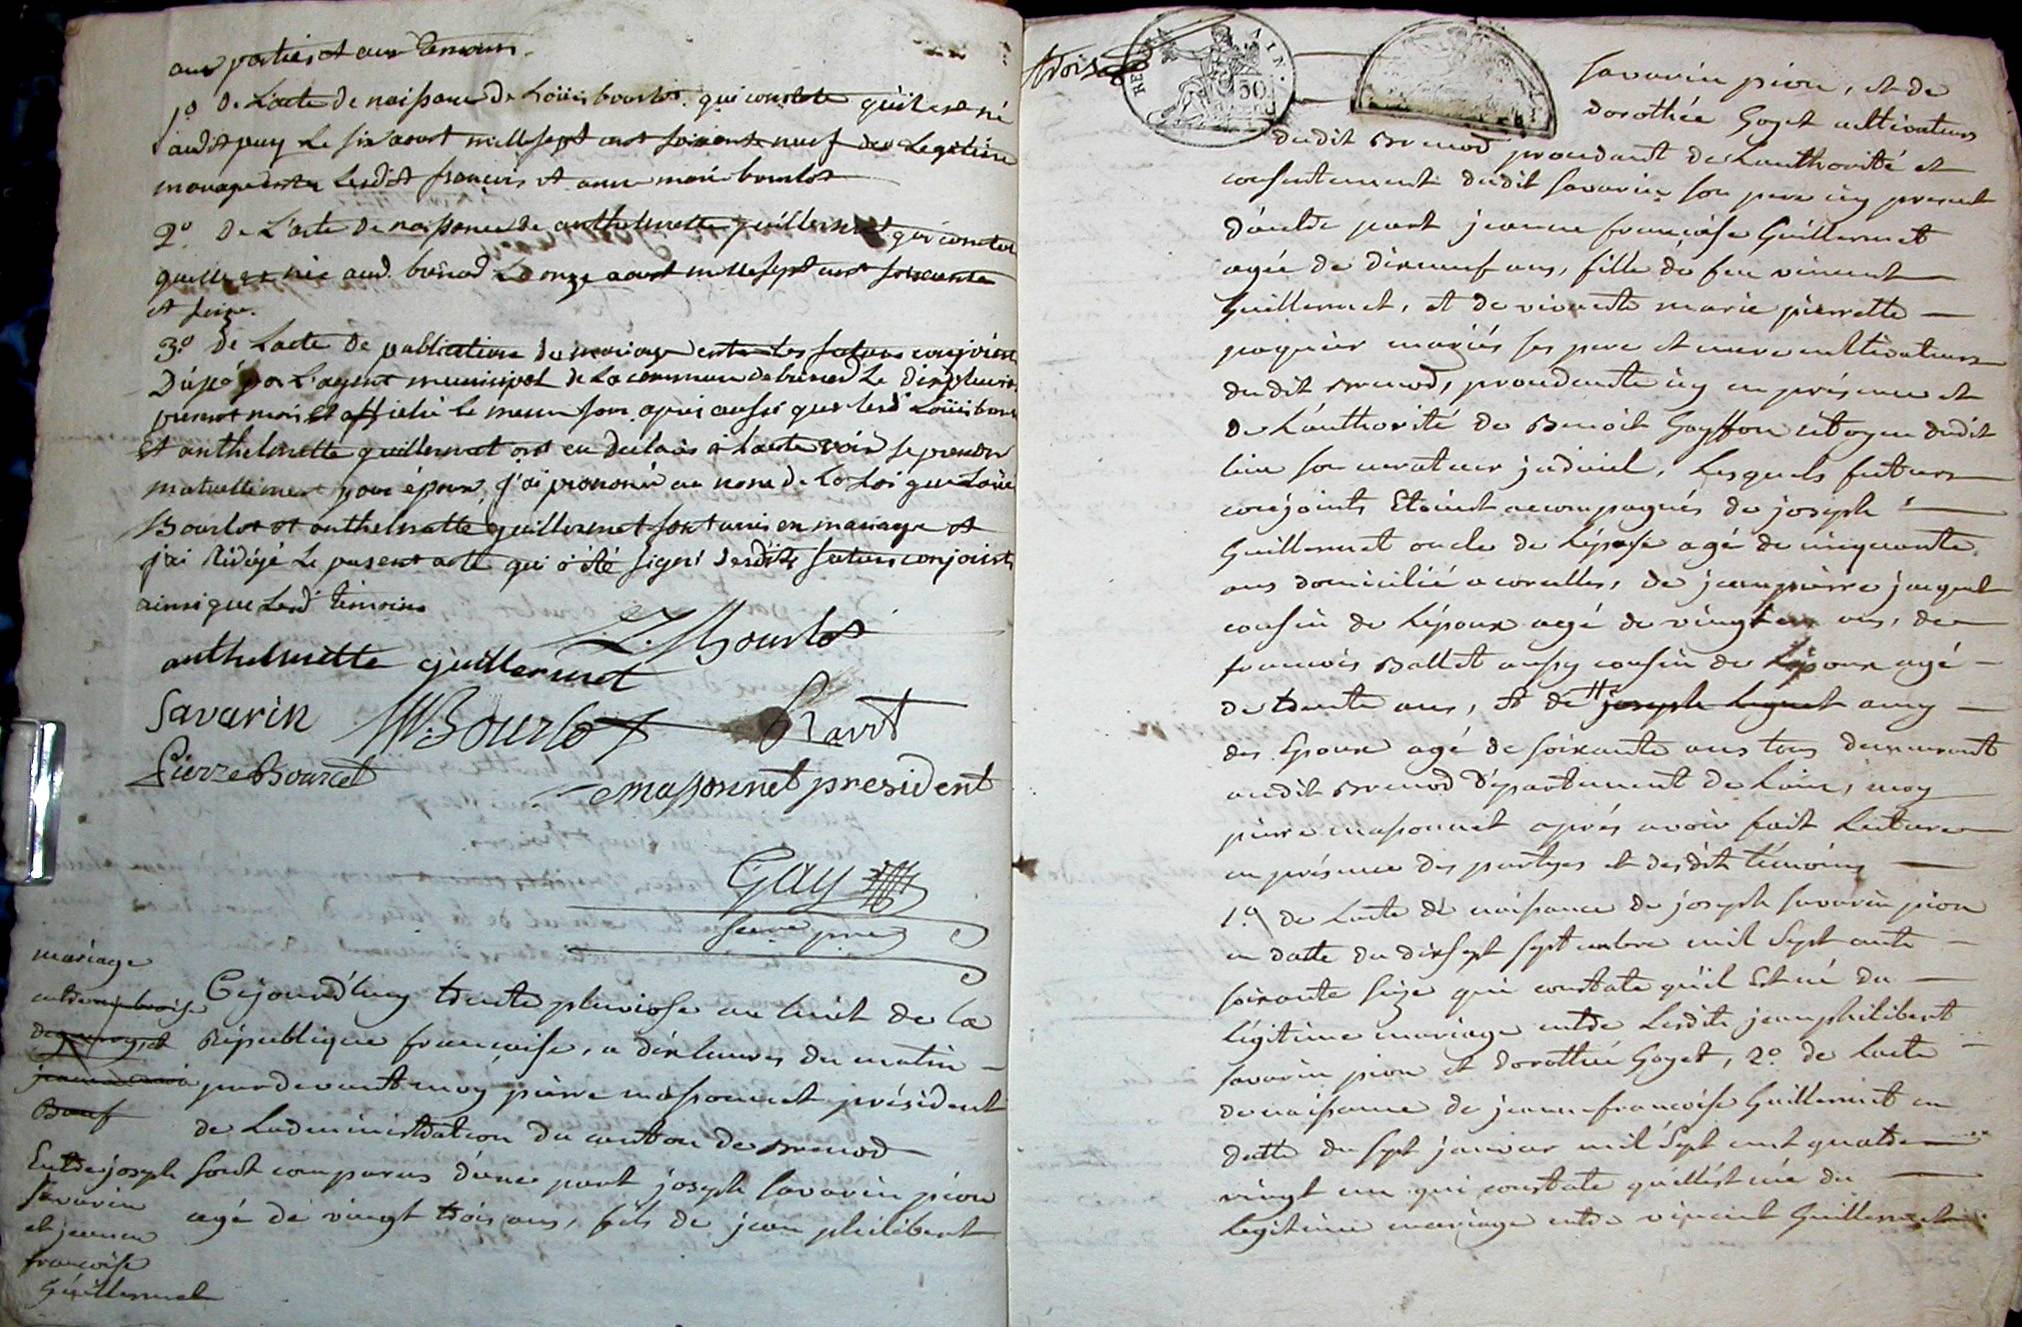 aux parties et aux temoins.
1º de L'acte de naissance de Loüis bourlot qui constate qu'il est né
audit puy le six aoust mille sept cent soixante neuf du Legitime
mariage entre lesdits françois et anne marie bourlot
2º. de L'acte de naissance de anthelmette guillermet qui constate
quelle est née aud. brénod le onze aoust mille sept cent soixante
et seize.
3º. de Lacte de publication de mariage entre les futurs conjoints
par L'agent municipal de la commune de brénod le dix pluviose
present mois et affiché le meme jour, apres aussi que lesd. Loüis bourlot
Et anthelmette guillermet ont eu declaré à haute voix se prendre
mutuellement pour époux, j'ai prononcé au nom de La Loi que Loüis
Bourlot et anthelmette guillermet sont unis en mariage et
j'ai Rédigé Le present acte qui a été signé desdits futurs conjoints
ainsi que Lesd. temoins
L. Bourlot
anthelmette guillermet
Savarin M Bourlot Ravet
Pierre Bourcet
masonnet president
Gay
mariage
entre
Bœuf
Entre joseph
Savarin
et jeanne
françoise
Guillermet
Cejourd'huy trente pluviose an huit de la
République francaise, a dix heures du matin
pardevant moy pierre masonnet président
de Ladministration du canton de Brenod
sont comparus d'une part joseph savarin pion
agé de vingt trois ans, fils de jean philibert
trois
50
savarin pion, et de
dorothée Goyet cultivateurs
dudit Brenod procedant de L'authorité et
consentement dudit savarin son pere icy present
d'autre part jeanne françoise Guillermet
agée de dixneuf ans, fille de feu vincent
Guillermet, et de vivante marie pierrette
paquier mariés ses pere et mere cultivateurs
dudit Brenod, procedante icy en présence et
de L'authorité de Benoit Goyffon citoyen dudit
lieu son curateur judiciel, Lesquels futurs
conjoints Etoient accompagnés de joseph
Guillermet oncle de Lépouse agé de cinquante
ans domicilié a corcelles, de jean pierre jacquet
cousin de Lépoux agé de vingt ans, de
francois Ballet aussy cousin de Lépoux agé
de trente ans, et de joseph amy
des Epoux agé de soixante ans tous demeurant
audit Brenod département de Lain, moy
pierre masonnet aprés avoir fait Lecture
en présence des partyes et desdit témoins
1.º de Lacte de naissance de joseph savarin pion
en datte du dixsept septembre mil sept cents
soixante seize qui constate qu'il Est né du
légitime mariage entre Lesdits jean philibert
savarin pion et Dorothée Goyet, 2º de Lacte
de naissance de jeanne francoise Guillermet en
datte du sept janvier mil sept cent quatre
vingt un qui constate qu'elle est née du
légitime mariage entre vincent Guillermet